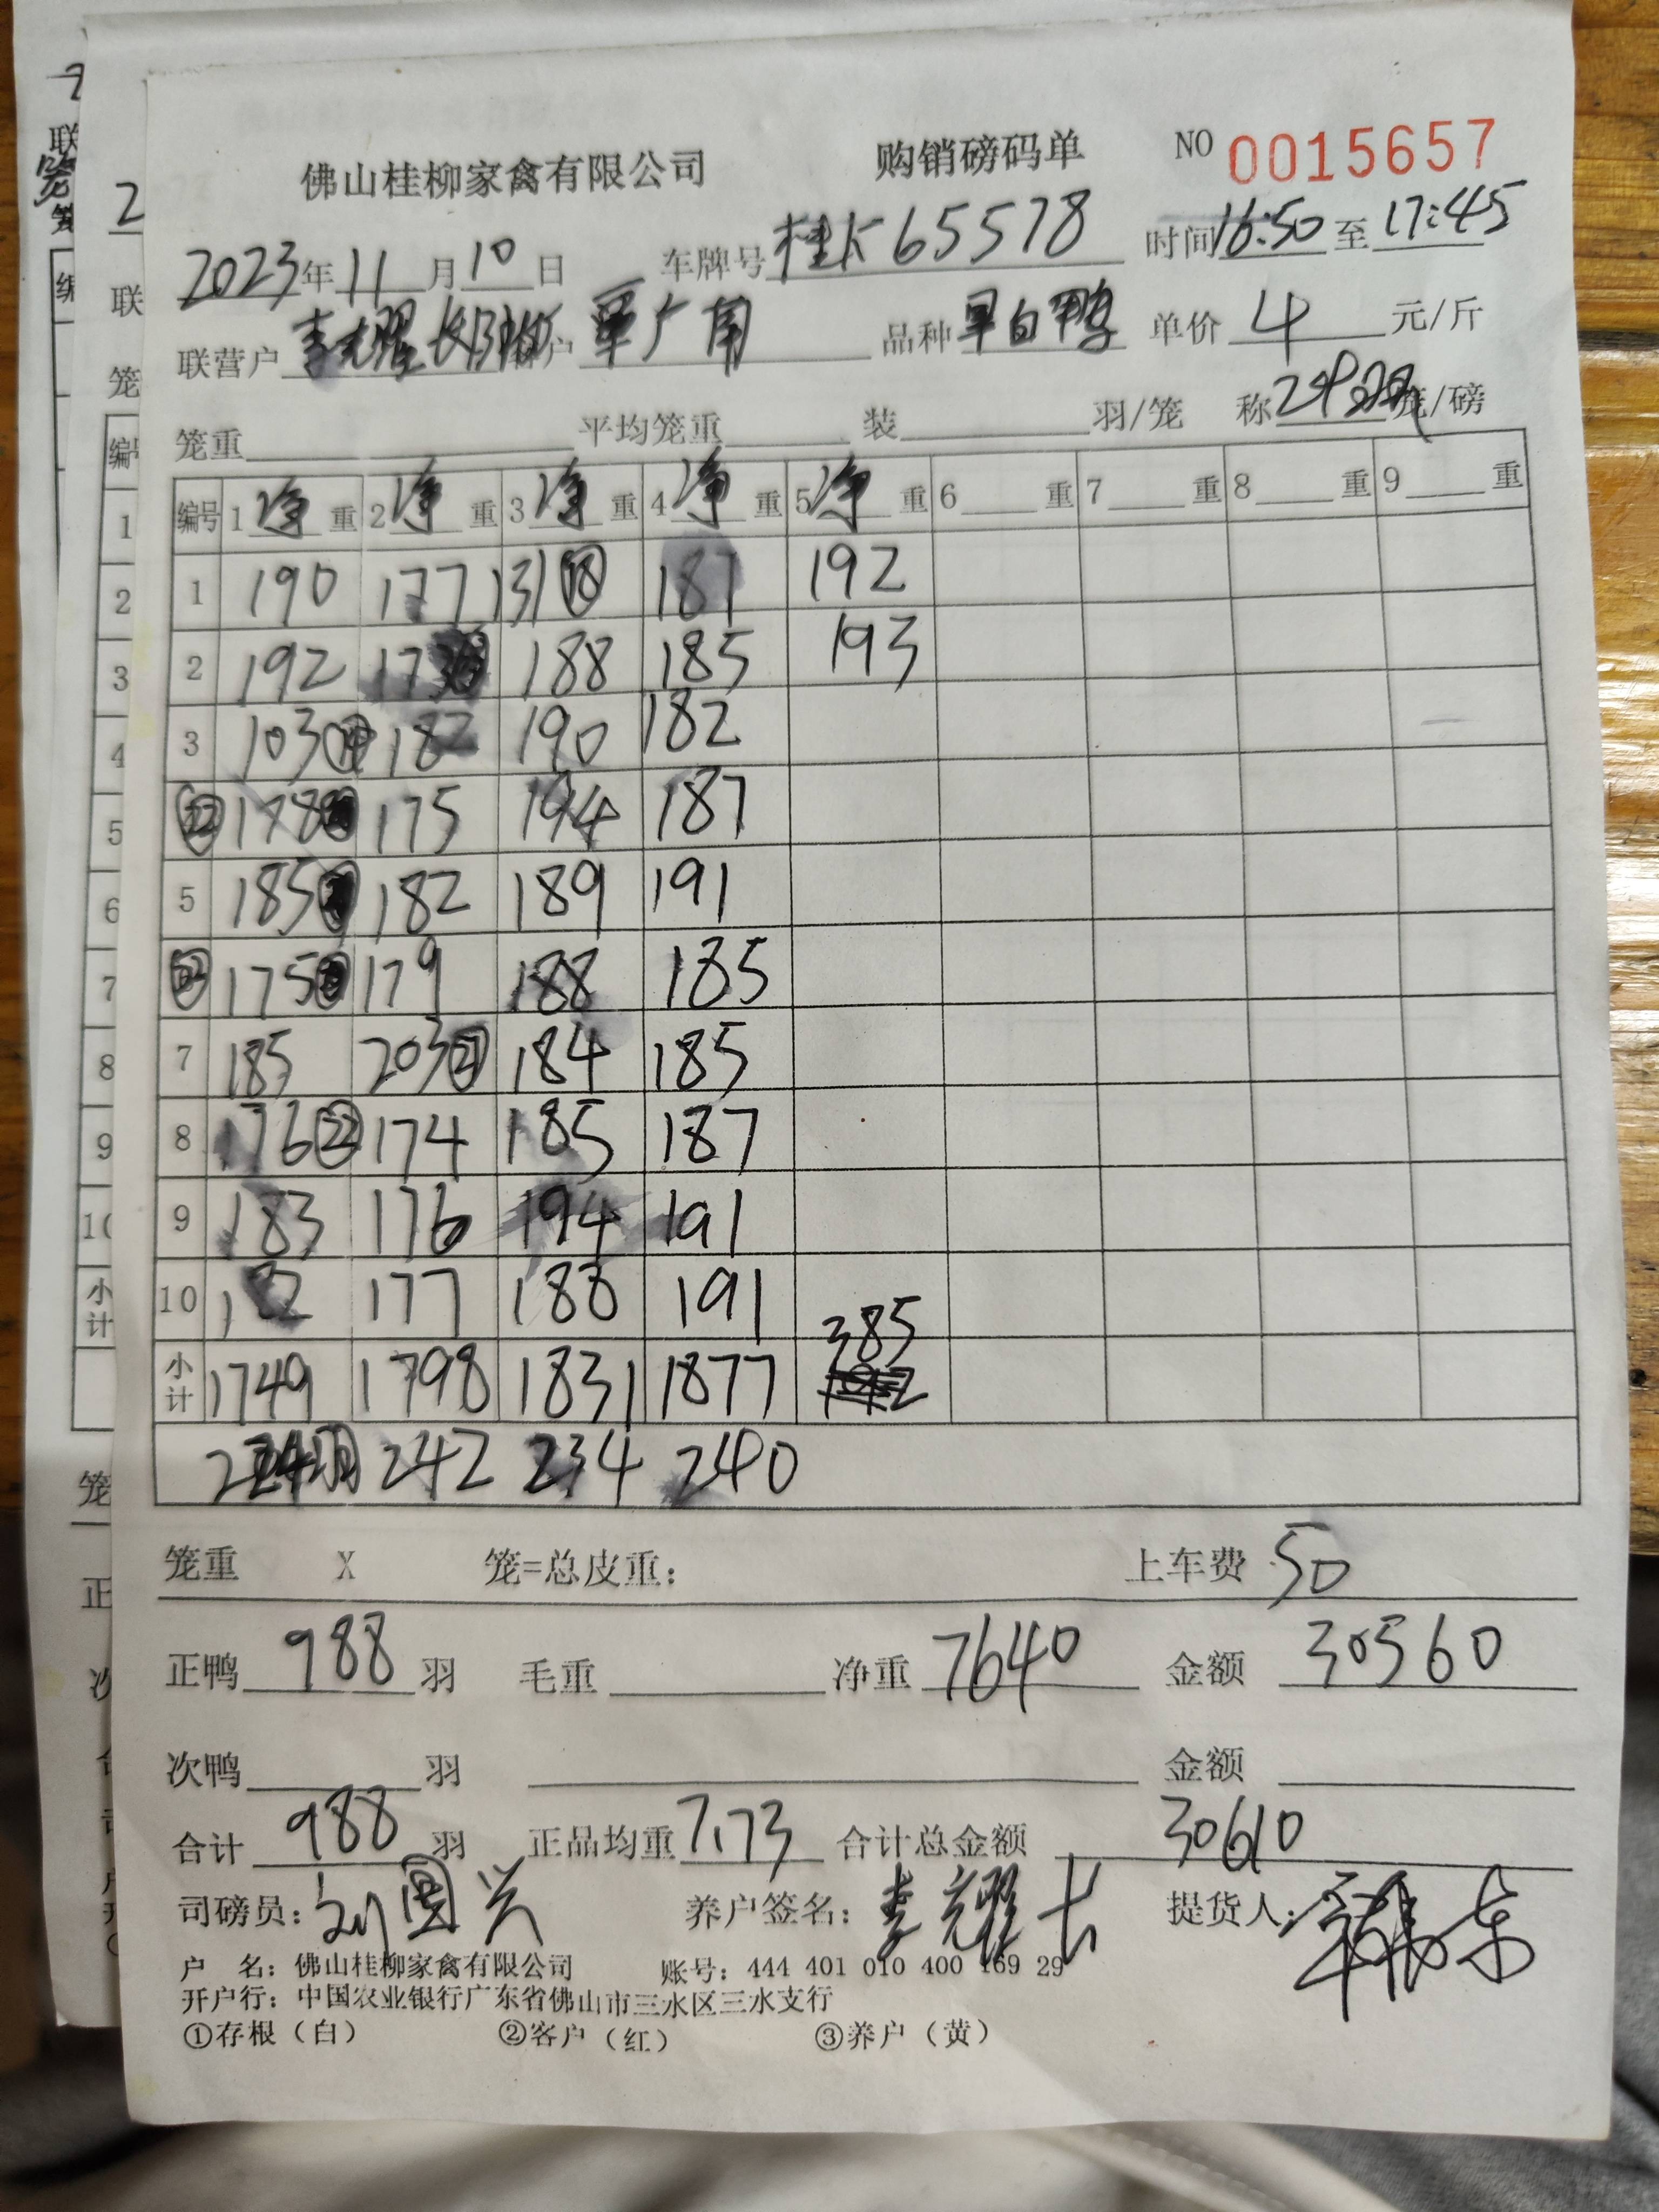 佛山桂柳家禽有限公司 购销磅码单 NO 0015657
2023年11月10日 车牌号桂K65578 时间16:50至17:45
联营户李光耀 户覃广南 品种旱白鸭 单价4元/斤
笼重 平均笼重 装 羽/笼 称 笼/磅
编号 1净重 2净重 3净重 4净重 5净重 6 重 7 重 8 重 9 重
1 190 177 131⑱ 187 192
2 192 173 188 185 193
3 103 182 190 182
㉒ 178 175 194 187
5 185 182 189 191
175 179 188 185
7 185 203㉑ 184 185
8 176㉒ 174 185 187
9 183 176 194 191
10 182 177 188 191
小计 1749 1798 1831 1877 385
242 234 240
笼重 X 笼=总皮重： 上车费 50
正鸭988羽 毛重 净重7640 金额30560
次鸭 羽 金额
合计988羽 正品均重7.73 合计总金额30610
司磅员：刘国兴 养户签名：李耀长 提货人：
户 名：佛山桂柳家禽有限公司 账号：444 401 010 400 169 29
开户行：中国农业银行广东省佛山市三水区三水支行
①存根（白） ②客户（红） ③养户（黄）